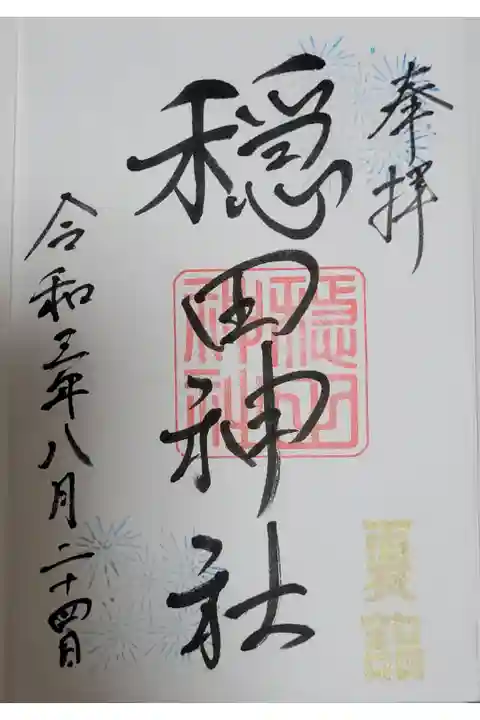 奉拝
穏田神社
穏田神社
令和三年八月二十四日